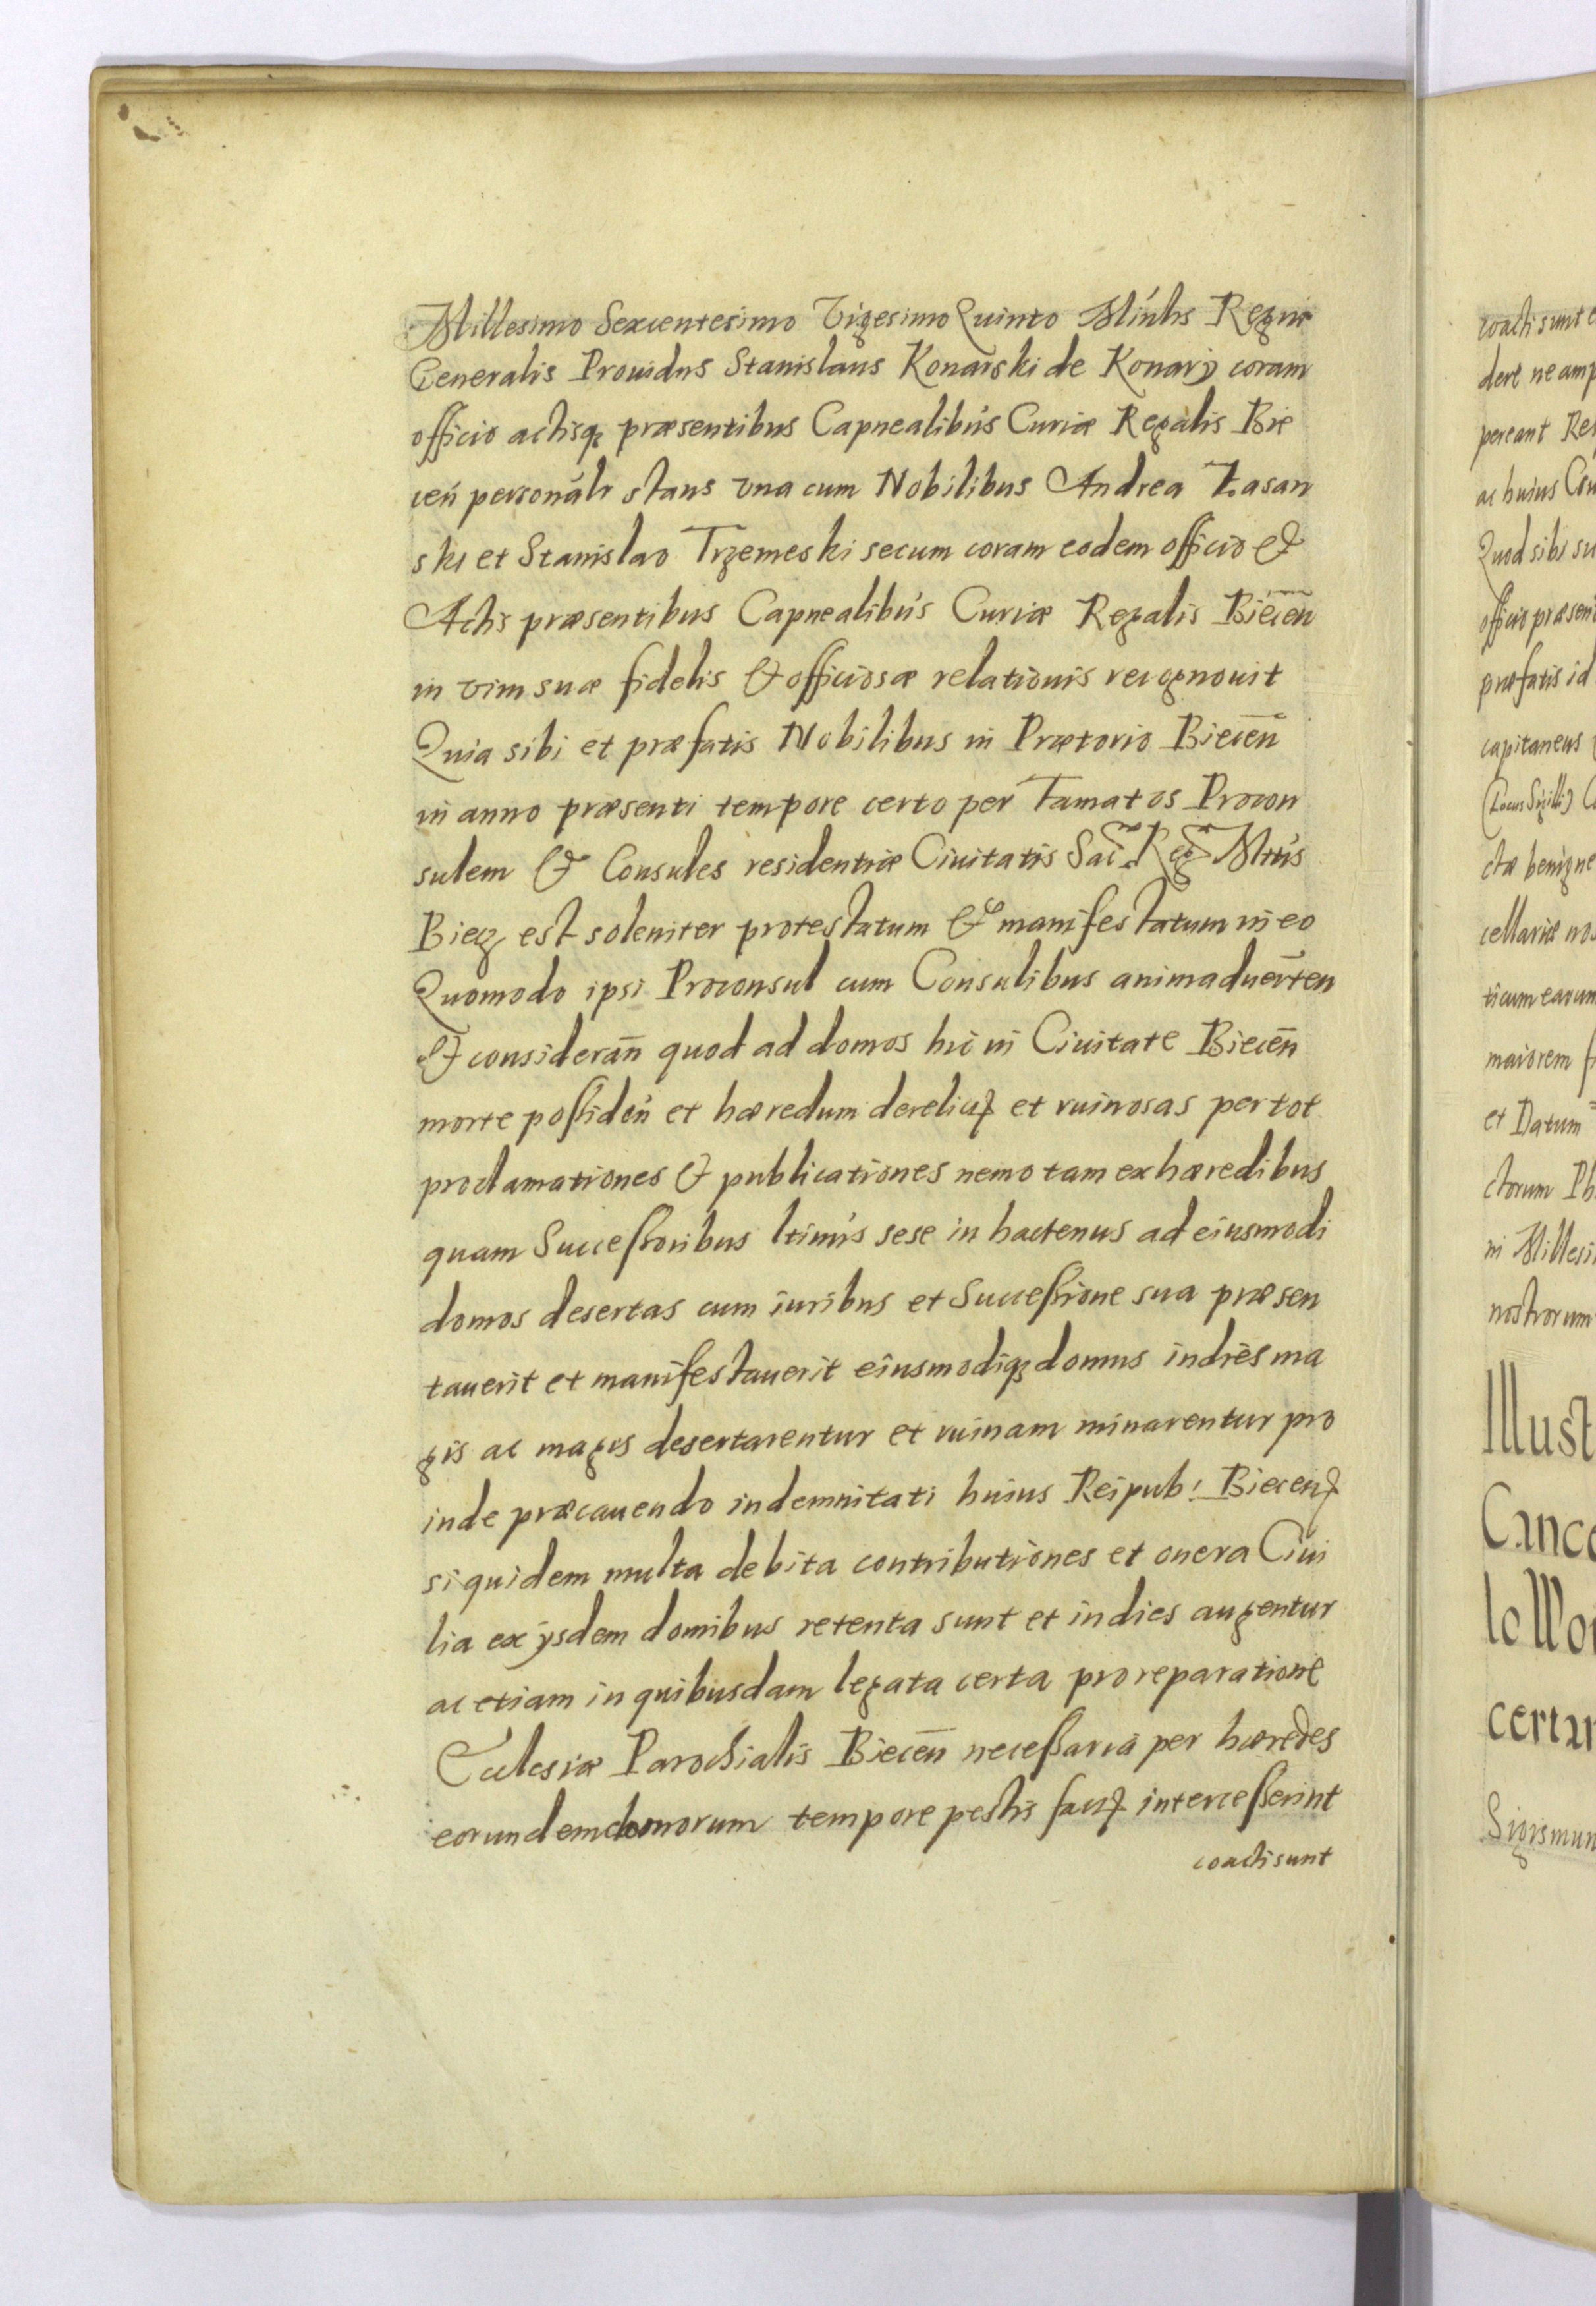 Millesimo Sexcentesimo Vigesimo Quinto Minlis Regni
Generalis Prouidus Stanislaus Konarski de Konarÿ coram
officio actisq; præsentibus Capnealibús Curiæ Regalis Bie
ceń personálr stans vna cum Nobilibus Andrea Łasan
ski et Stanislao Trzemeski secum coram eodem officio &
Actis præsentibus Capnealibús Curiæ Regalis Biecen̄
in vim suæ fidelis & officiosæ relationis recognouit
Quia sibi et præfatis Nobilibus in Prætorio Biecen̄
in anno præsenti tempore certo per Famatos Procon
sulem & Consules residentiæ Ciuitatis Sac Reg Mttis
Biecz est soleniter protestatum & manifestatum in eo
Quomodo ipsi Proconsul cum Consulibus animaduerten
& consideran̄ quod ad domos hic in Ciuitate Biecen̄
morte possideń et hæredum derelict et ruinosas per tot
proclamationes & publicationes nemo tam ex hæredibus
quam Successoribus ltimis sese in hactenus ad eiusmodi
domos desertas cum iuribus et Successione sua præsen
tauerit et manifestauerit eiusmodiq; domus indies ma
gis ac magis desertarentur et ruinam minarentur pro
inde præcauendo indemnitati huius Reipub: Biecen
siquidem multa debita contributiones et onera Ciui
lia ex ÿsdem domibus retenta sunt et indies augentur
ac etiam in quibusdam legata certa pro reparatione
Ecclesiæ Parochialis Biecen̄ necessaria per hæredes
eorundem domorum tempore pestis fact intercesserint
coacti sunt
coacti sunt
dere ne amp
pereant
ac huius
Quod sibi su
officio præsen
præfatis id
capitaneus
(Locus Sigilli)
ctæ benigne
cellariæ nos
ticum earum
maiorem
et Datum
ctorum
in Millesi
nostrorum
Illust
Cance
certar
Sigismun